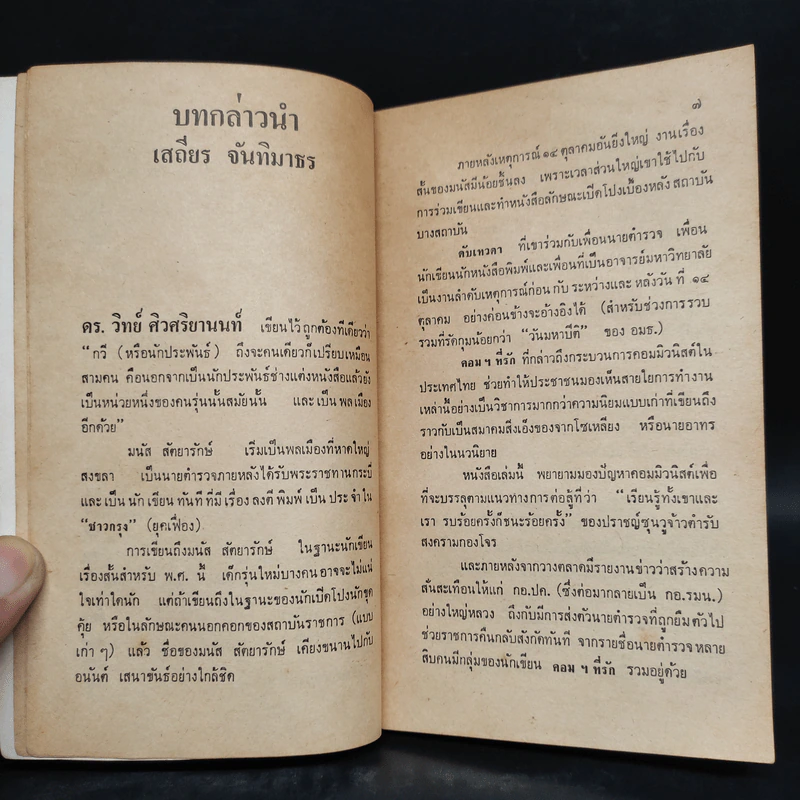 บทกล่าวนำ
เสถียร จันทิมาธร
ดร. วิทย์ ศิวศริยานนท์ เขียนไว้ถูกต้องทีเดียวว่า
“กวี (หรือนักประพันธ์) ถึงจะคนเดียวก็เปรียบเหมือน
สามคน คือนอกจากเป็นนักประพันธ์ช่างแต่งหนังสือแล้วยัง
เป็นหน่วยหนึ่งของคนรุ่นนั้นสมัยนั้น และเป็นพลเมือง
อีกด้วย”
มนัส สัตยารักษ์ เริ่มเป็นพลเมืองที่หาดใหญ่
สงขลา เป็นนายตำรวจภายหลังได้รับพระราชทานกระบี่
และเป็นนักเขียนทันทีที่มีเรื่องลงตีพิมพ์เป็นประจำใน
“ชาวกรุง” (ยุคเฟื่อง)
การเขียนถึงมนัส สัตยารักษ์ ในฐานะนักเขียน
เรื่องสั้นสำหรับ พ.ศ. นี้ เด็กรุ่นใหม่บางคนอาจจะไม่แน่
ใจเท่าใดนัก แต่ถ้าเขียนถึงในฐานะของนักเปิดโปงนักขุด
คุ้ย หรือในลักษณะคนนอกคอกของสถาบันราชการ (แบบ
เก่า ๆ) แล้ว ชื่อของมนัส สัตยารักษ์ เคียงขนานไปกับ
อนันต์ เสนาขันธ์อย่างใกล้ชิด
๗
ภายหลังเหตุการณ์ ๑๔ ตุลาคมอันยิ่งใหญ่ งานเรื่อง
สั้นของมนัสมีน้อยชิ้นลง เพราะเวลาส่วนใหญ่เขาใช้ไปกับ
การร่วมเขียนและทำหนังสือลักษณะเปิดโปงเบื้องหลัง สถาบัน
บางสถาบัน
ดับเทวดา ที่เขาร่วมกับเพื่อนนายตำรวจ เพื่อน
นักเขียนนักหนังสือพิมพ์และเพื่อนที่เป็นอาจารย์มหาวิทยาลัย
เป็นงานลำดับเหตุการณ์ก่อน กับ ระหว่างและ หลังวัน ที่ ๑๔
ตุลาคม อย่างค่อนข้างจะอ้างอิงได้ (สำหรับช่วงการรวบ
รวมที่รัดกุมน้อยกว่า “วันมหาปิติ” ของ อมธ.)
คอม ฯ ที่รัก ที่กล่าวถึงกระบวนการคอมมิวนิสต์ใน
ประเทศไทย ช่วยทำให้ประชาชนมองเห็นสายใยการทำงาน
เหล่านี้อย่างเป็นวิชาการมากกว่าความนิยมแบบเก่าที่เขียนถึง
ราวกับเป็นสมาคมลึงเอ็งของจากโซเหลียง หรือนายอาทร
อย่างในนวนิยาย
หนังสือเล่มนี้ พยายามมองปัญหาคอมมิวนิสต์เพื่อ
ที่จะบรรลุตามแนวทางการต่อสู้ที่ว่า “เรียนรู้ทั้งเขาและ
เรา รบร้อยครั้งก็ชนะร้อยครั้ง” ของปราชญ์ซุนวูจ้าวตำรับ
สงครามกองโจร
และภายหลังจากวางตลาดมีรายงานข่าวว่าสร้างความ
สั่นสะเทือนให้แก่ กอ.ปค. (ซึ่งต่อมากลายเป็น กอ.รมน.)
อย่างใหญ่หลวง ถึงกับมีการส่งตัวนายตำรวจที่ถูกยืมตัวไป
ช่วยราชการคืนกลับสังกัดทันที จากรายชื่อนายตำรวจหลาย
สิบคนมีกลุ่มของนักเขียน คอม ฯ ที่รัก รวมอยู่ด้วย